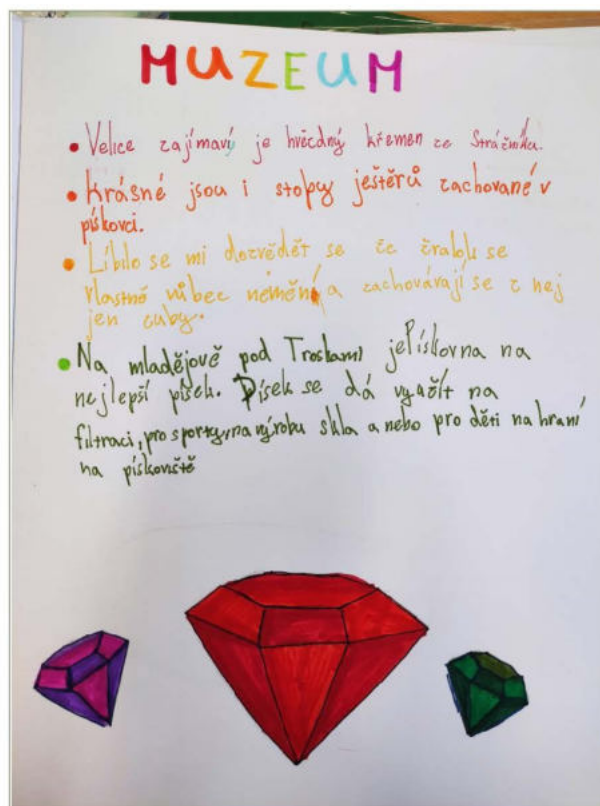 MUZEUM
• Velice zajímavý je hvězdný křemen ze Strážníku.
• Krásné jsou i stopy ještěrů zachované v
pískovci.
• Líbilo se mi dozvědět se že žralok se
vlastně vůbec nemění a zachovávají se z nej
jen zuby.
• Na mladějově pod Troskami jePískovna na
nejlepší písek. Písek se dá využít na
filtraci, pro sporty, na výrobu skla a nebo pro děti na hraní
na pískoviště